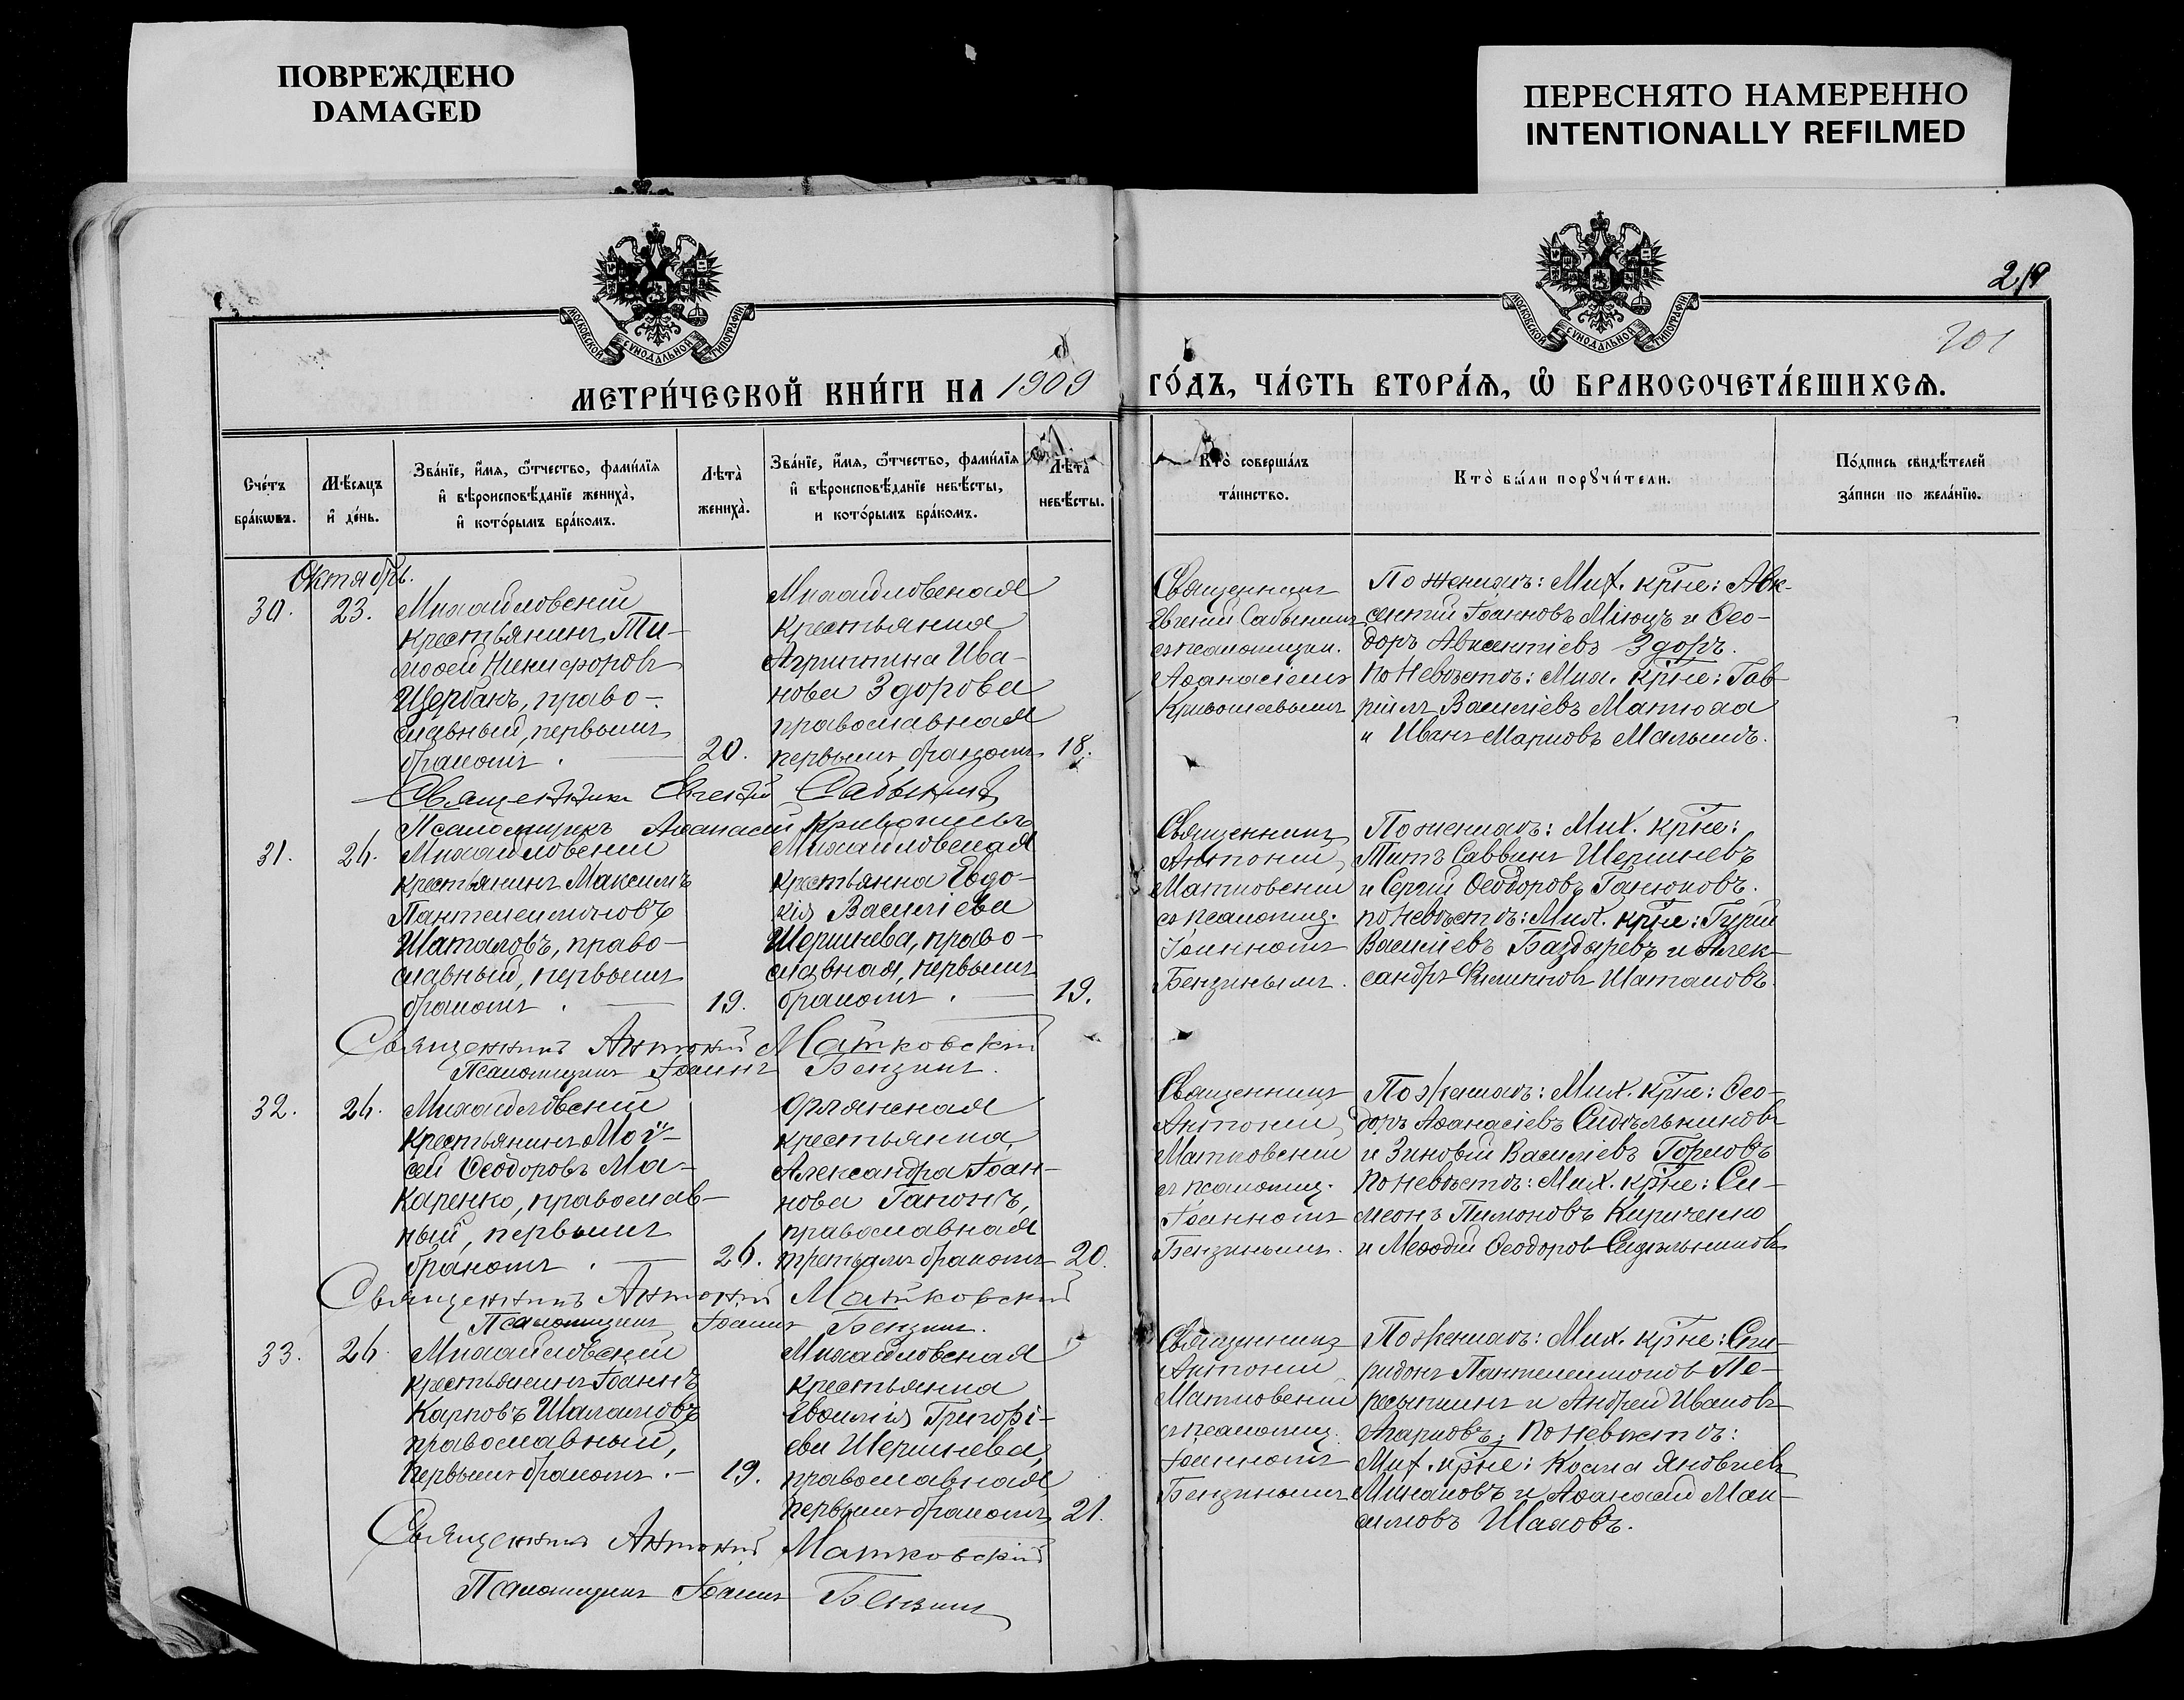 ПОВРЕЖДЕНО
DAMAGED
ПЕРЕСНЯТО НАМЕРЕННО
INTENTIONALLY REFILMED
МОСКОВСКОЙ СѴНОДАЛЬНОЙ ТИПОГРАФІИ
МОСКОВСКОЙ СѴНОДАЛЬНОЙ ТИПОГРАФІИ
201
МЕТРИ́ЧЕСКОЙ КНИ́ГИ НА 1909 ГО́ДЪ, ЧА́СТЬ ВТОРА́Ѧ, Ѽ БРАКОСОЧЕТА́ВШИХСѦ.
Сче́тъ
бра́кѡвъ.
Мѣ́сѧцъ
и҆ де́нь.
Зва́нїе, и҆́мѧ, ѻ҆́тчество, фами́лїѧ
и҆ вѣроисповѣ́данїе жениха̀,
и҆ кото́рымъ бра́комъ.
Лѣта̀
жениха̀.
Зва́нїе, и҆́мѧ, ѻ҆́тчество, фами́лїѧ
и҆ вѣроисповѣ́данїе невѣ́сты,
и кото́рымъ бра́комъ.
Лѣта̀
невѣ́сты.
Кто̀ соверша́лъ
та́инство.
Кто̀ бы́ли порꙋчи́тели.
По́дпись свидѣ́телей
за́писи по жела́нїю.
Октябрь.
30.
23.
Михайловскій
крестьянинъ Ти-
моѳей Никифоровъ
Щербакъ, право-
славный, первымъ
бракомъ. — 20.
Михайловская
крестьянка
Агриппина Ива-
нова Здорова
православная
первымъ бракомъ 18.
Священникъ
Евгеній Сабынинъ
съ псаломщик.
Аѳанасіемъ
Кривошеевымъ
По женихѣ: Мих. крне: Авк-
сентій Іоанновъ и Ѳео-
доръ Авксентіевъ Здоръ.
По невѣстѣ: Мих. крне: Гав-
ріилъ Василіевъ
и Иванъ Марковъ
Священникъ Евгеній Сабынинъ
Псаломщикъ Аѳанасій Кривошеевъ
31.
24.
Михайловскій
крестьянинъ Максимъ
Пантелеимоновъ
Шаталовъ, право-
славный, первымъ
бракомъ. — 19.
Михайловская
крестьянка Евдо-
кія Василіева
Шершнева, право-
славная, первымъ
бракомъ. — 19.
Священникъ
Антоній
Матковскій
съ псаломщ.
Іоанномъ
Бензинымъ.
По женихѣ: Мих. крне:
Титъ Саввинъ Шершневъ
и Сергій Ѳеодоровъ Ганюковъ.
По невѣстѣ: Мих. крне: Гурій
Василіевъ Баздыревъ и Алек-
сандръ Филипповъ Шаталовъ.
Священникъ Антоній Матковскій
Псаломщикъ Іоаннъ Бензинъ.
32.
24.
Михайловскій
крестьянинъ Мои-
сей Ѳеодоровъ Ма-
каренко, православ-
ный, первымъ
бракомъ. — 26.
Орлянская
крестьянка
Александра Іоан-
нова Гапонъ,
православная
третьимъ бракомъ 20.
Священникъ
Антоній
Матковскій
съ псаломщ.
Іоанномъ
Бензинымъ.
По женихѣ: Мих. крне: Ѳео-
доръ Аѳанасіевъ Сидѣльниковъ
и Зиновій Василіевъ Горловъ
По невѣстѣ: Мих. крне: Си-
меонъ Пимоновъ Кириченко
и Меѳодій Ѳеодоровъ Сидѣльниковъ
Священникъ Антоній Матковскій
Псаломщикъ Іоаннъ Бензинъ.
33.
26
Михайловскій
крестьянинъ Іоаннъ
Карповъ
православный,
первымъ бракомъ. — 19.
Михайловская
крестьянка
Евѳимія Григорі-
ева Шершнева,
православная
первымъ бракомъ 21.
Священникъ
Антоній
Матковскій
съ псаломщ.
Іоанномъ
Бензинымъ
По женихѣ: Мих. крне: Спи-
ридонъ Пантелеимоновъ Пе-
ресыпкинъ и Андрей Ивановъ
По невѣстѣ:
Мих. крне: Косма Яковлевъ
Минаковъ и Аѳанасій Мак-
симовъ
Священникъ Антоній Матковскій
Псаломщикъ Іоаннъ Бензинъ